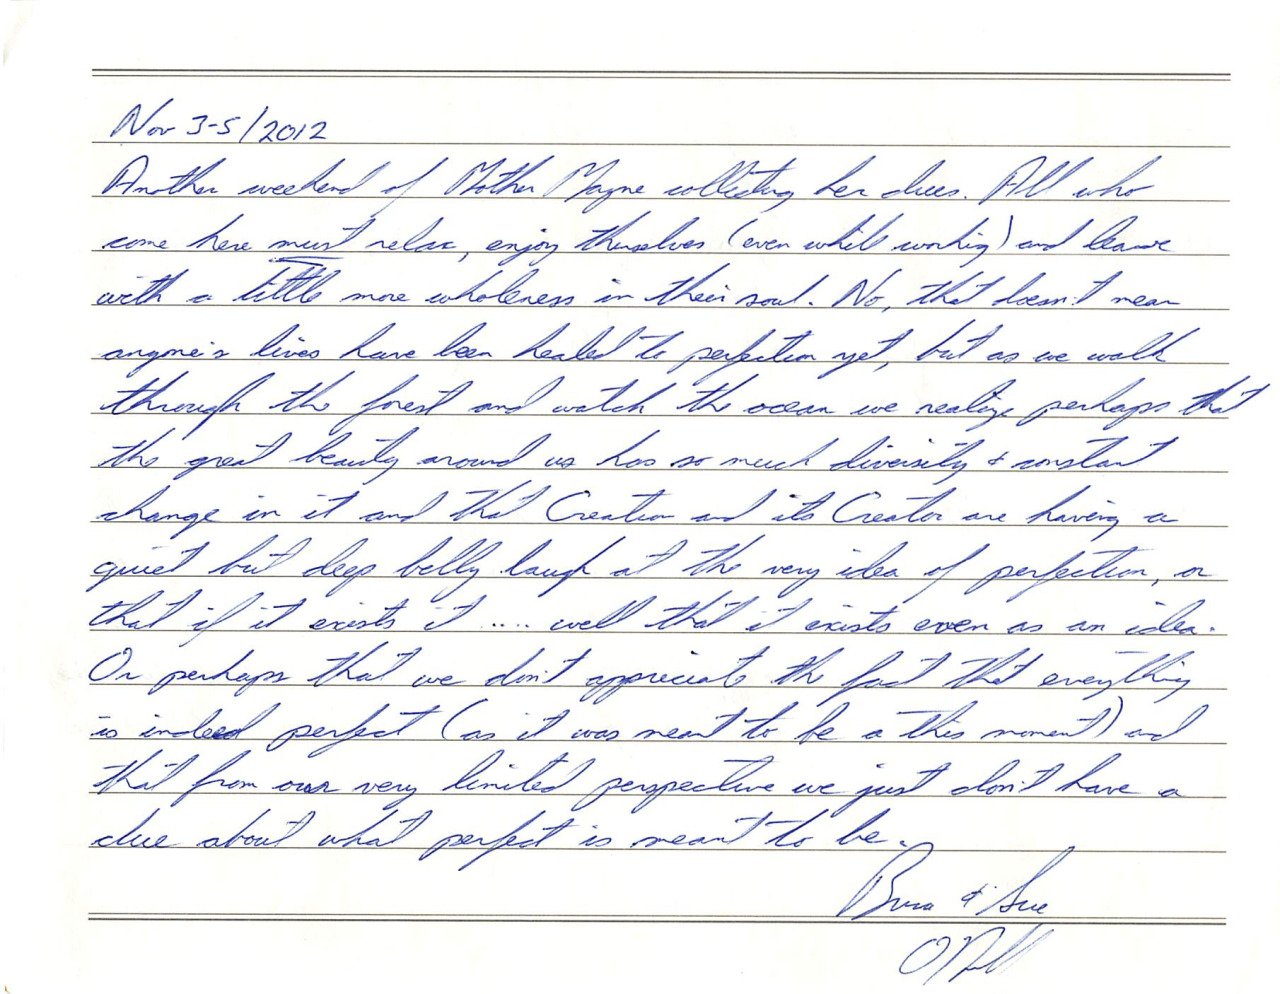 Nov 3-5/2012
Another weekend of Mother Mayne collecting her dues. All who
come here must relax, enjoy themselves (even while working) and leave
with a little more wholeness in their soul. No, that doesn't mean
anyone's lives have been healed to perfection yet, but as we walk
through the forest and watch the ocean we realize perhaps that
the great beauty around us has so much diversity & constant
change in it and that Creation and its Creator are having a
quiet but deep belly laugh at the very idea of perfection, or
that if it exists it ..... well that it exists even as an idea.
Or perhaps that we don't appreciate the fact that everything
is indeed perfect (as it was meant to be a this moment) and
that from our very limited perspective we just don't have a
clue about what perfect is meant to be.
& Sue
O'Neill